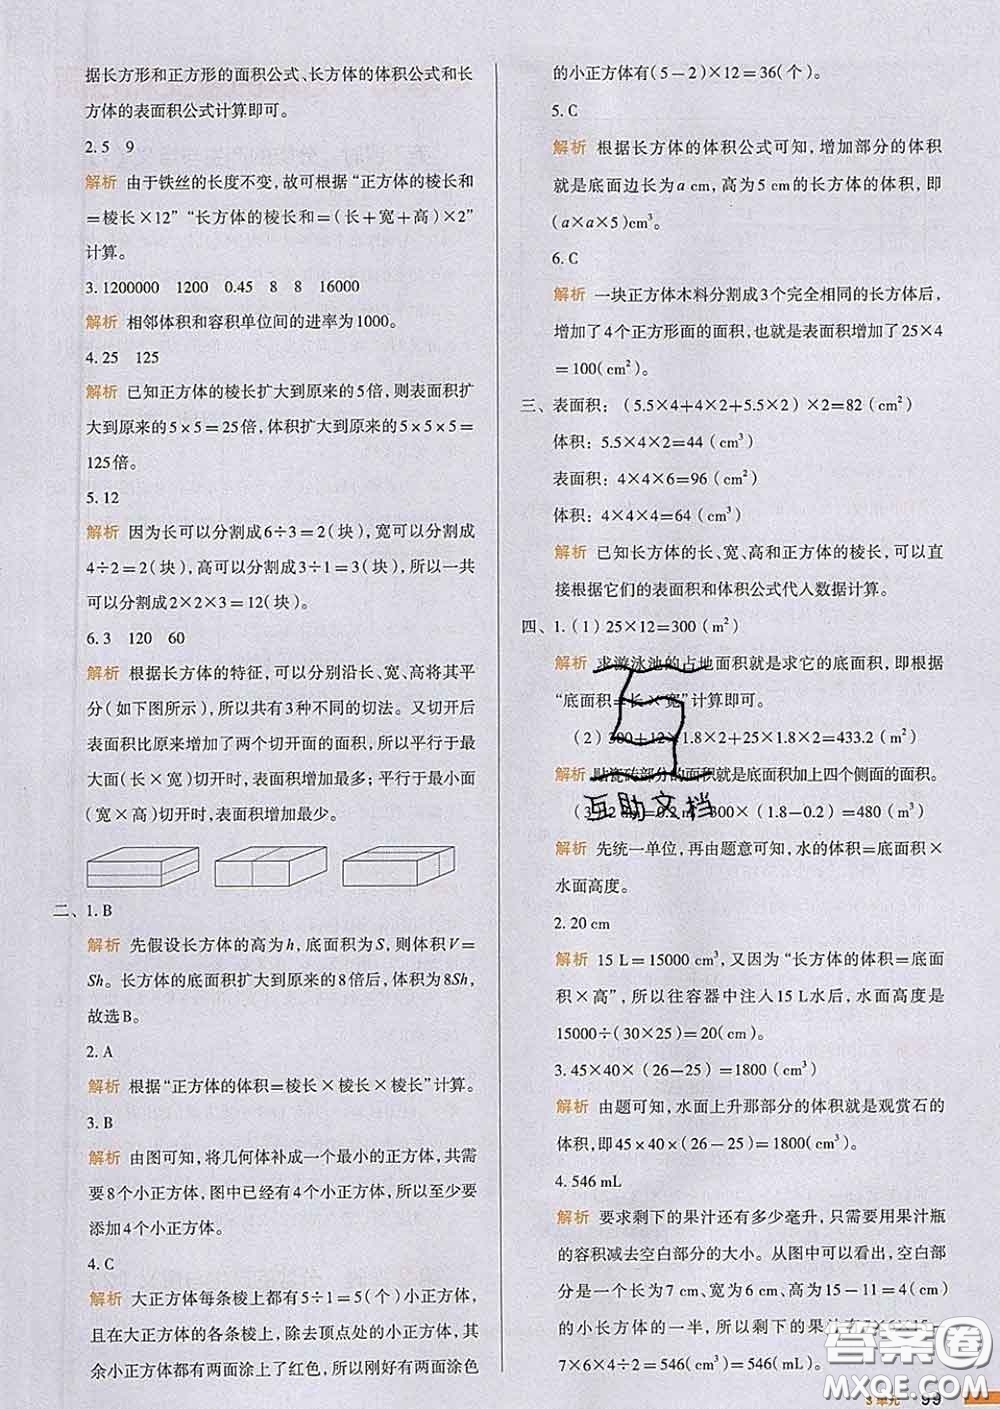 据长方形和正方形的面积公式、长方体的体积公式和长
方体的表面积公式计算即可。
2. 5 9
解析 由于铁丝的长度不变，故可根据“正方体的棱长和
=棱长×12”“长方体的棱长和=(长+宽+高)×2”
计算。
3. 1200000 1200 0.45 8 8 16000
解析 相邻体积和容积单位间的进率为1000。
4. 25 125
解析 已知正方体的棱长扩大到原来的5倍，则表面积扩
大到原来的5×5=25倍，体积扩大到原来的5×5×5=
125倍。
5. 12
解析 因为长可以分割成6÷3=2(块)，宽可以分割成
4÷2=2(块)，高可以分割成3÷1=3(块)，所以一共
可以分割成2×2×3=12(块)。
6. 3 120 60
解析 根据长方体的特征，可以分别沿长、宽、高将其平
分(如下图所示)，所以共有3种不同的切法。又切开后
表面积比原来增加了两个切开面的面积，所以平行于最
大面(长×宽)切开时，表面积增加最多；平行于最小面
(宽×高)切开时，表面积增加最少。
二、1. B
解析 先假设长方体的高为h，底面积为S，则体积V=
Sh。长方体的底面积扩大到原来的8倍后，体积为8Sh，
故选B。
2. A
解析 根据“正方体的体积=棱长×棱长×棱长”计算。
3. B
解析 由图可知，将几何体补成一个最小的正方体，共需
要8个小正方体，图中已经有4个小正方体，所以至少要
添加4个小正方体。
4. C
解析 大正方体每条棱上都有5÷1=5(个)小正方体，
且在大正方体的各条棱上，除去顶点处的小正方体，其
余小正方体都有两面涂上了红色，所以刚好有两面涂色
的小正方体有(5-2)×12=36(个)。
5. C
解析 根据长方体的体积公式可知，增加部分的体积
就是底面边长为a cm，高为5 cm的长方体的体积，即
(a×a×5)cm³。
6. C
解析 一块正方体木料分割成3个完全相同的长方体后，
增加了4个正方形面的面积，也就是表面积增加了25×4
=100(cm²)。
三、表面积：(5.5×4+4×2+5.5×2)×2=82(cm²)
体积：5.5×4×2=44(cm³)
表面积：4×4×6=96(cm²)
体积：4×4×4=64(cm³)
解析 已知长方体的长、宽、高和正方体的棱长，可以直
接根据它们的表面积和体积公式代人数据计算。
四、1.(1)25×12=300(m²)
解析 求游泳池的占地面积就是求它的底面积，即根据
“底面积=长×宽”计算即可。
(2)300+12×1.8×2+25×1.8×2=433.2(m²)
解析 贴瓷砖部分的面积就是底面积加上四个侧面的面积。
=0.2 m 300×(1.8-0.2)=480(m³)
解析 先统一单位，再由题意可知，水的体积=底面积×
水面高度。
2. 20 cm
解析 15 L=15000 cm³，又因为“长方体的体积=底面
积×高”，所以往容器中注入15 L水后，水面高度是
15000÷(30×25)=20(cm)。
3. 45×40×(26-25)=1800(cm³)
解析 由题可知，水面上升那部分的体积就是观赏石的
体积，即45×40×(26-25)=1800(cm³)。
4. 546 mL
解析 要求剩下的果汁还有多少毫升，只需要用果汁瓶
的容积减去空白部分的大小。从图中可以看出，空白部
分是一个长为7 cm、宽为6 cm、高为15-11=4(cm)
的小长方体的一半，所以剩下的果汁有
7×6×4÷2=546(cm³)=546(mL)。
互助文档
答案圈
MXQE.COM
3单元 99